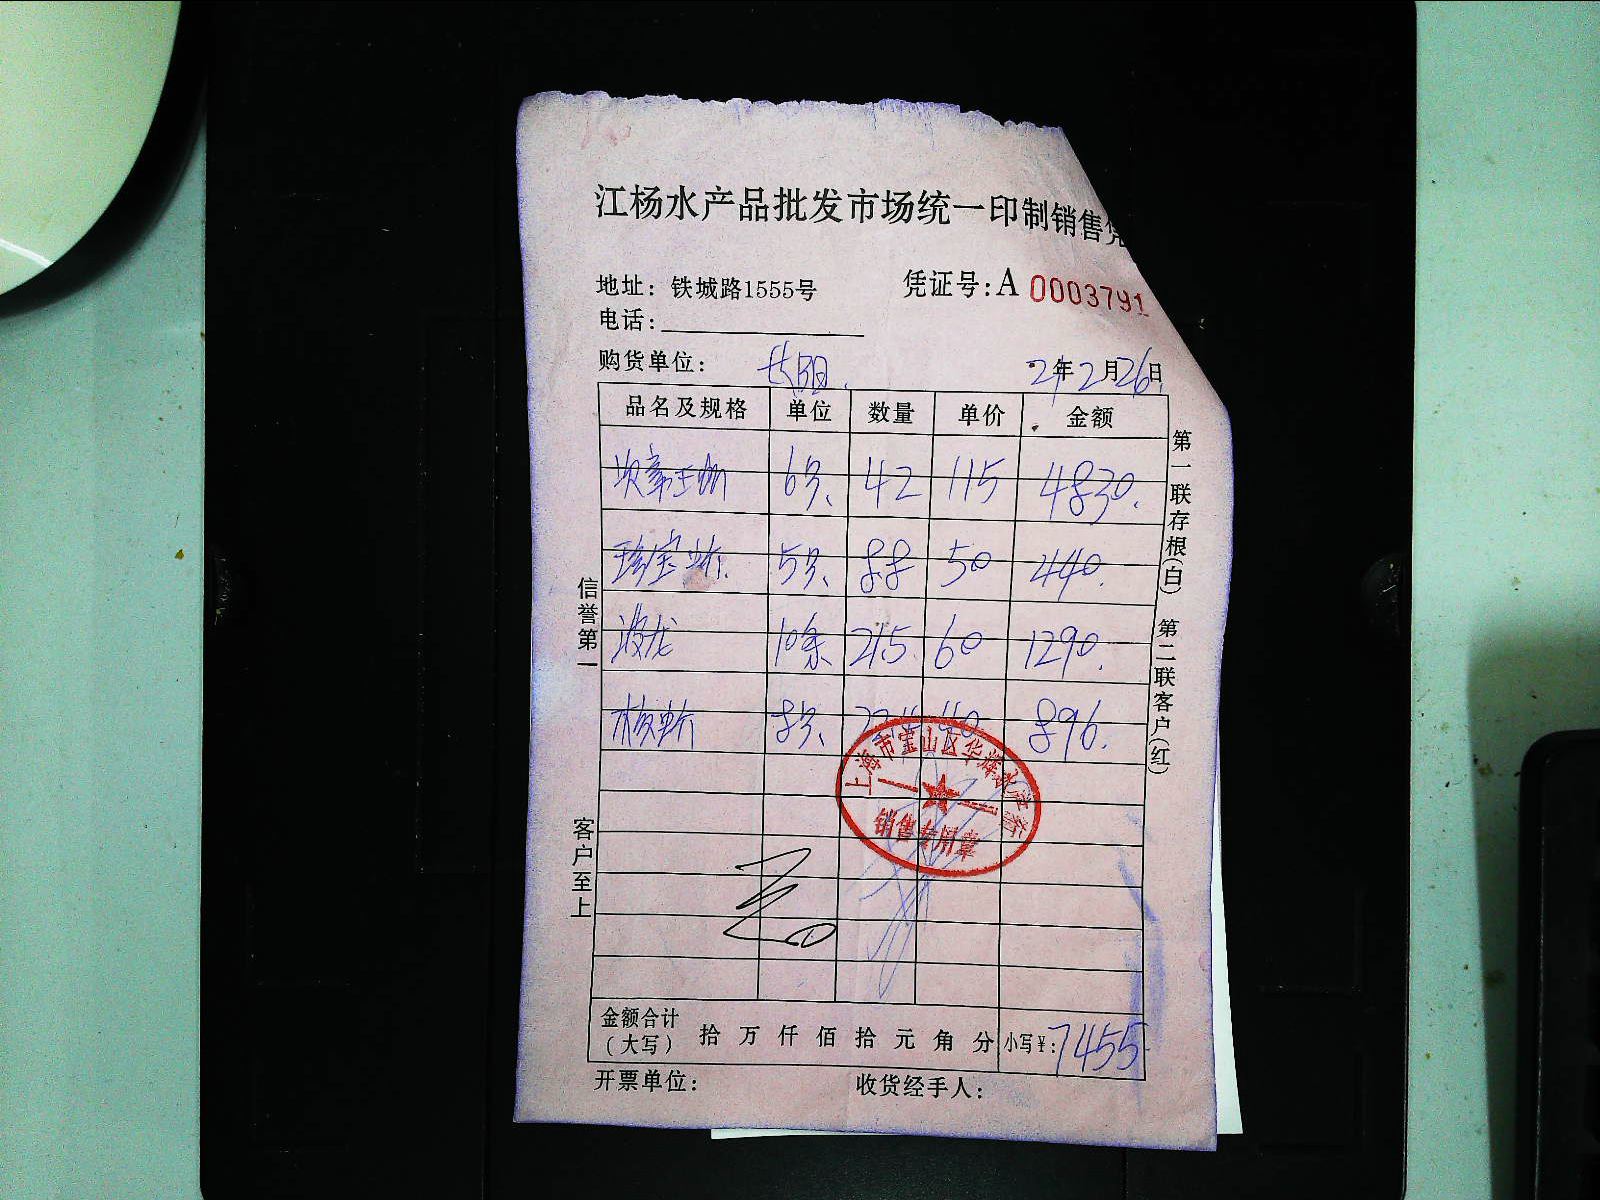 江杨水产品批发市场统一印制销售凭
地址：铁城路1555号 凭证号：A 0003791
电话：
购货单位： 长阳 21年2月26日
品名及规格 单位 数量 单价 金额
6只 42 115 4830.
珍宝蟹 5只 88 50 440.
波龙 10条 215 60 1290.
8只 40 896.
上海市宝山区华辉水产
销售专用章
金额合计（大写） 拾 万 仟 佰 拾 元 角 分 小写￥：7455
开票单位： 收货经手人：
信誉第一
客户至上
第一联存根（白） 第二联客户（红）